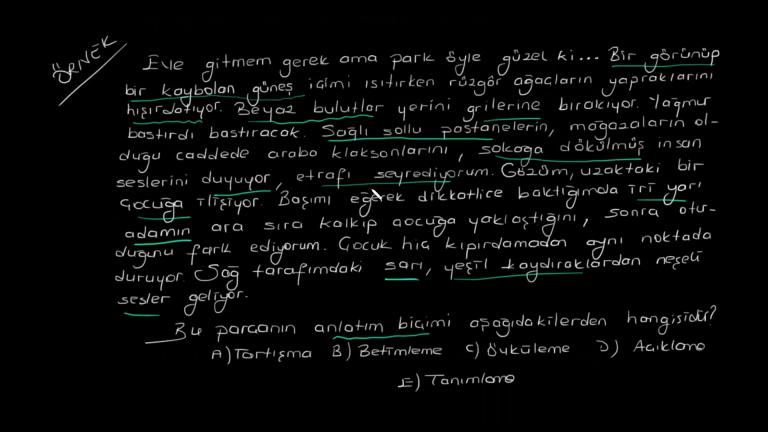 ÖRNEK
Eve gitmem gerek ama park öyle güzel ki... Bir görünüp
bir kaybolan güneş içimi ısıtırken rüzgâr ağaçların yapraklarını
hışırdatıyor. Beyaz bulutlar yerini grilerine bırakıyor. Yağmur
bastırdı bastıracak. Sağlı sollu pastanelerin, mağazaların ol-
duğu caddede araba klaksonlarını, sokağa dökülmüş insan
seslerini duyuyor, etrafı seyrediyorum. Gözüm, uzaktaki bir
çocuğa ilişiyor. Başımı eğerek dikkatlice baktığımda iri yarı
adamın ara sıra kalkıp çocuğa yaklaştığını, sonra otur-
duğunu fark ediyorum. Çocuk hiç kıpırdamadan aynı noktada
duruyor. Sağ tarafımdaki sarı, yeşil kaydıraklardan neşeli
sesler geliyor.
Bu parçanın anlatım biçimi aşağıdakilerden hangisidir?
A) Tartışma B) Betimleme C) Öyküleme D) Açıklama
E) Tanımlama